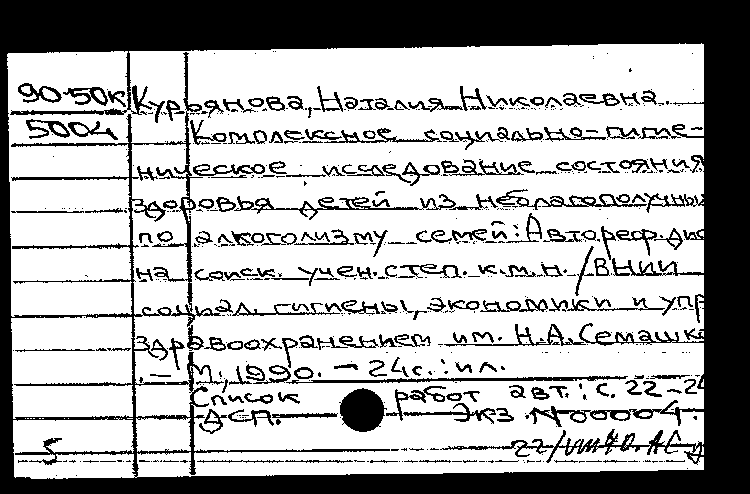 90-50к Курьянова, Наталия Николаевна.
5004 Комплексное социально-гигие-
ническое исследование состояния
здоровья детей из неблагополучных
по алкоголизму семей: Автореф. дис
на соиск. учен. степ. к.м.н. / ВНИИ
социал. гигиены, экономики и упр
здравоохранением им. Н.А. Семашко
. - М., 1990. - 24с.: ил.
Список работ авт.: с. 22-24
ДСП. Экз. N00004.
5